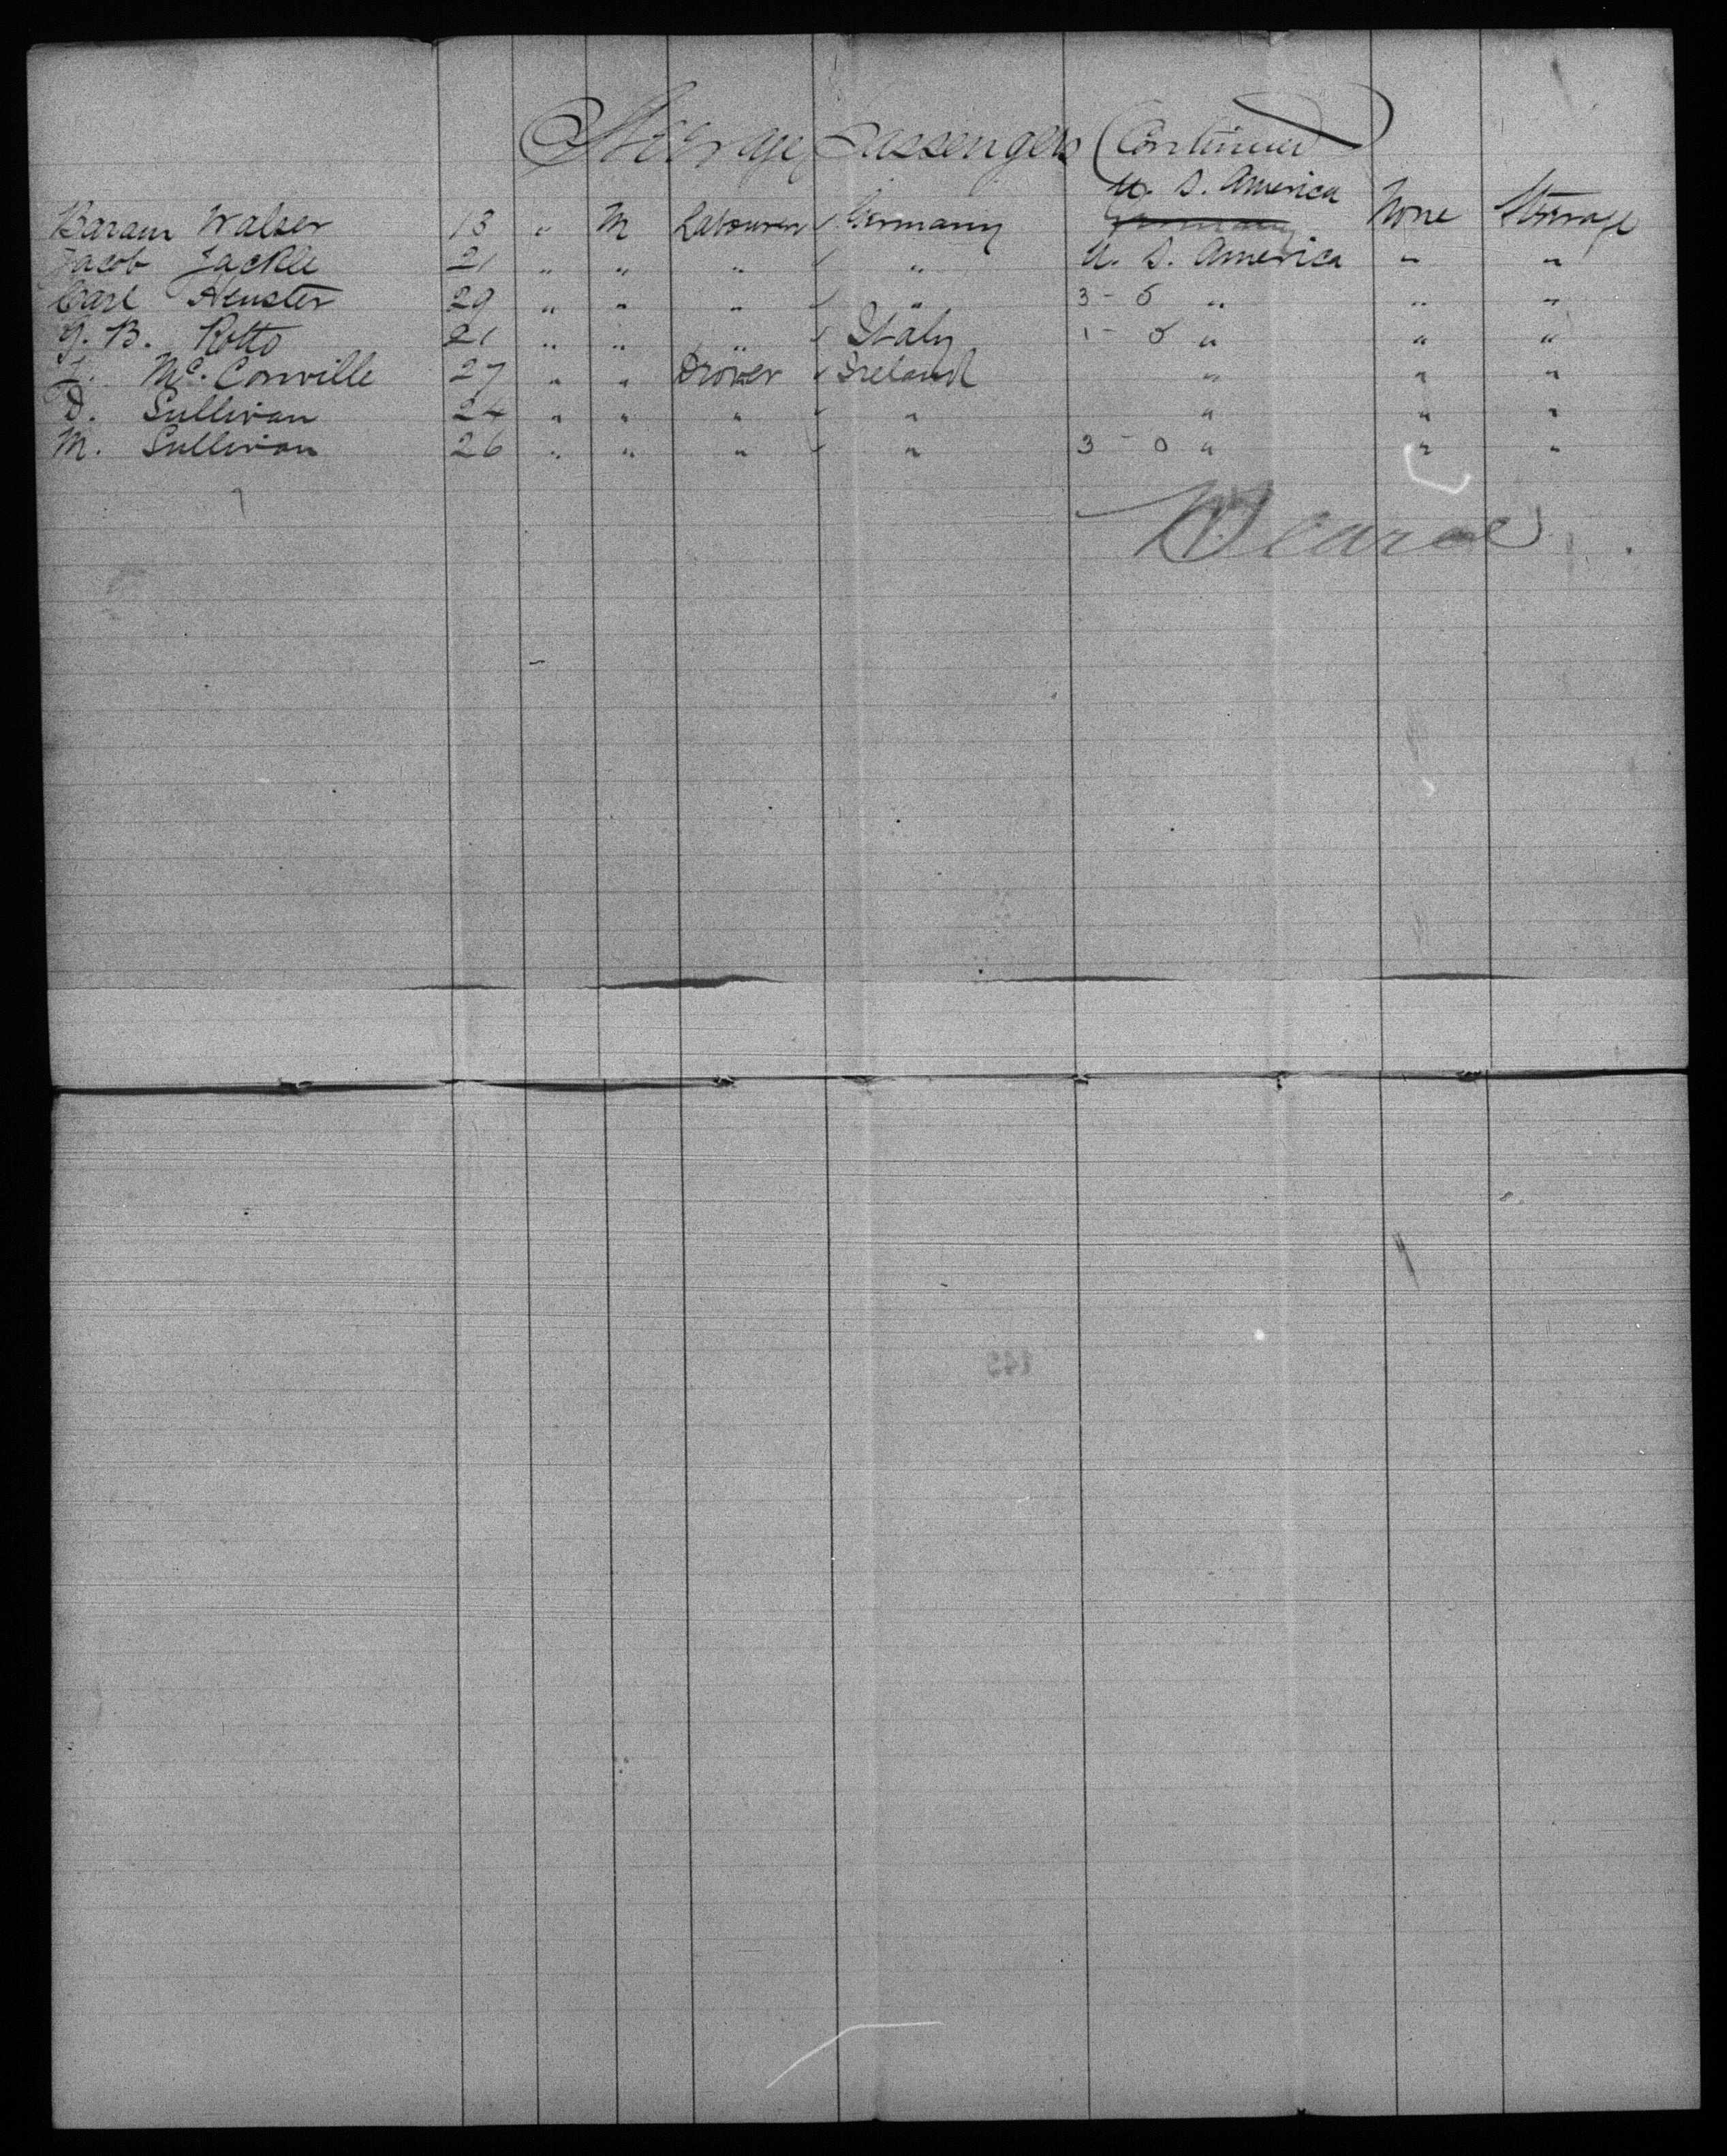 Steerage Passengers (Continued)
U. S. America
Baram Walser 18 " M Labourer ✓ Germany Germany None Steerage
Jacob Jackle 21 " " " ✓ " U. S. America " "
Carl Henster 29 " " " ✓ " 3 - 0 " " "
G. B. Rotto 21 " " " ✓ Italy 1 - 0 " " "
Mc. Conville 27 " " Drover ✓ Ireland " " "
D. Sullivan 24 " " " ✓ " " " "
M. Sullivan 26 " " " ✓ " 3 - 0 " " "